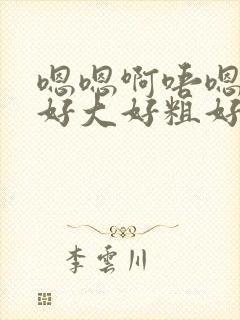 嗯嗯啊唔嗯
好大好粗好
李雲川